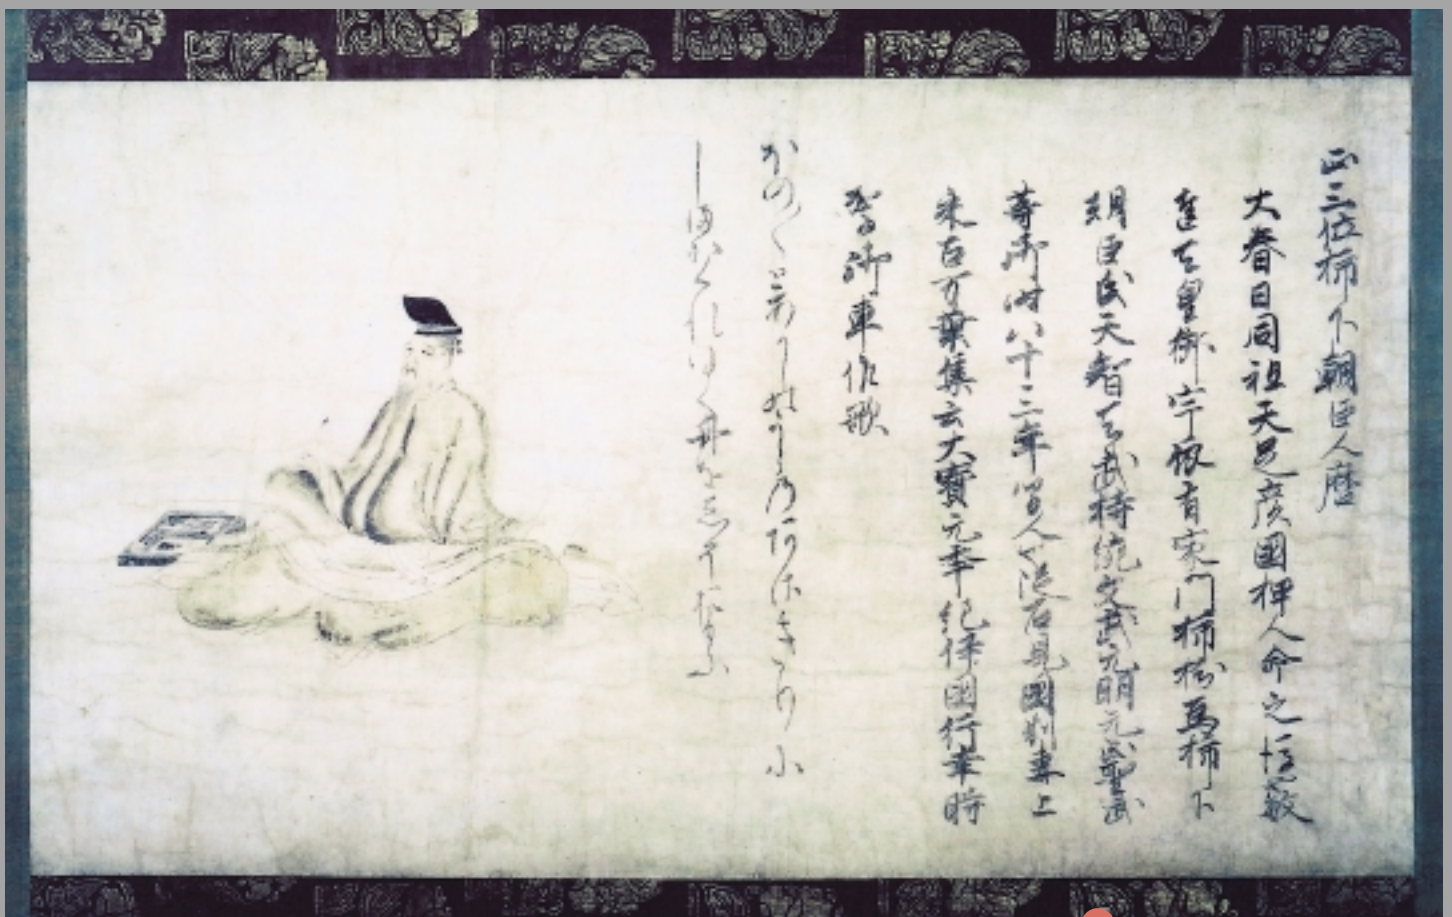 正三位柿下朝臣人麿
大春日同祖天足彦國押人命之後敏
達天皇御宇依有家門柿樹爲柿下
朝臣氏天智天武持統文武元明元聖武
等御時八十三年間人也從石見國別妻上
来万葉集云大寶元年紀伊國行幸時
駕御車作歌
ほの〳〵とあかしのうらのあさきりに
しまかくれゆく舟をしそおもふ